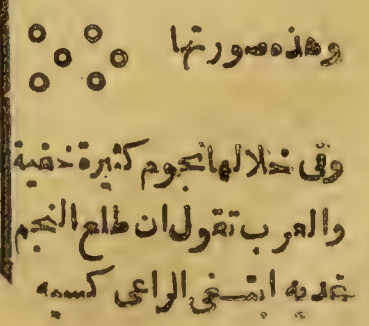 وهذه صورتها
وفى خلالها نجوم كثيرة خفية
والعرب تقول ان طلع النجم
غديه ابتغى الراعى كسيه